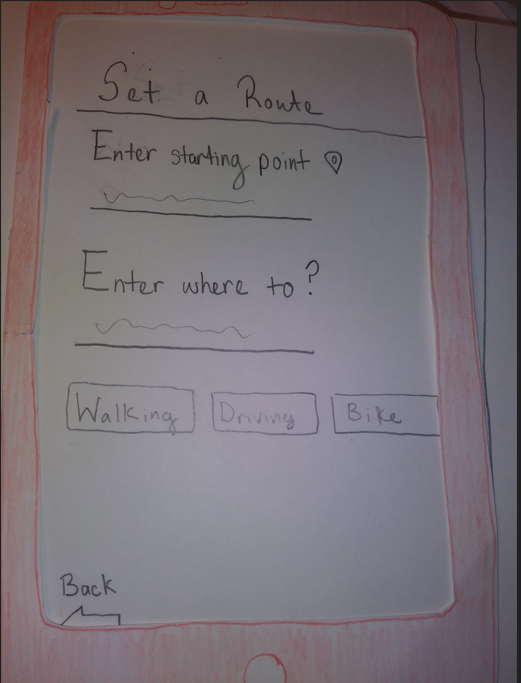 Set a Route
Enter starting point
Enter where to?
Walking Driving Bike
Back